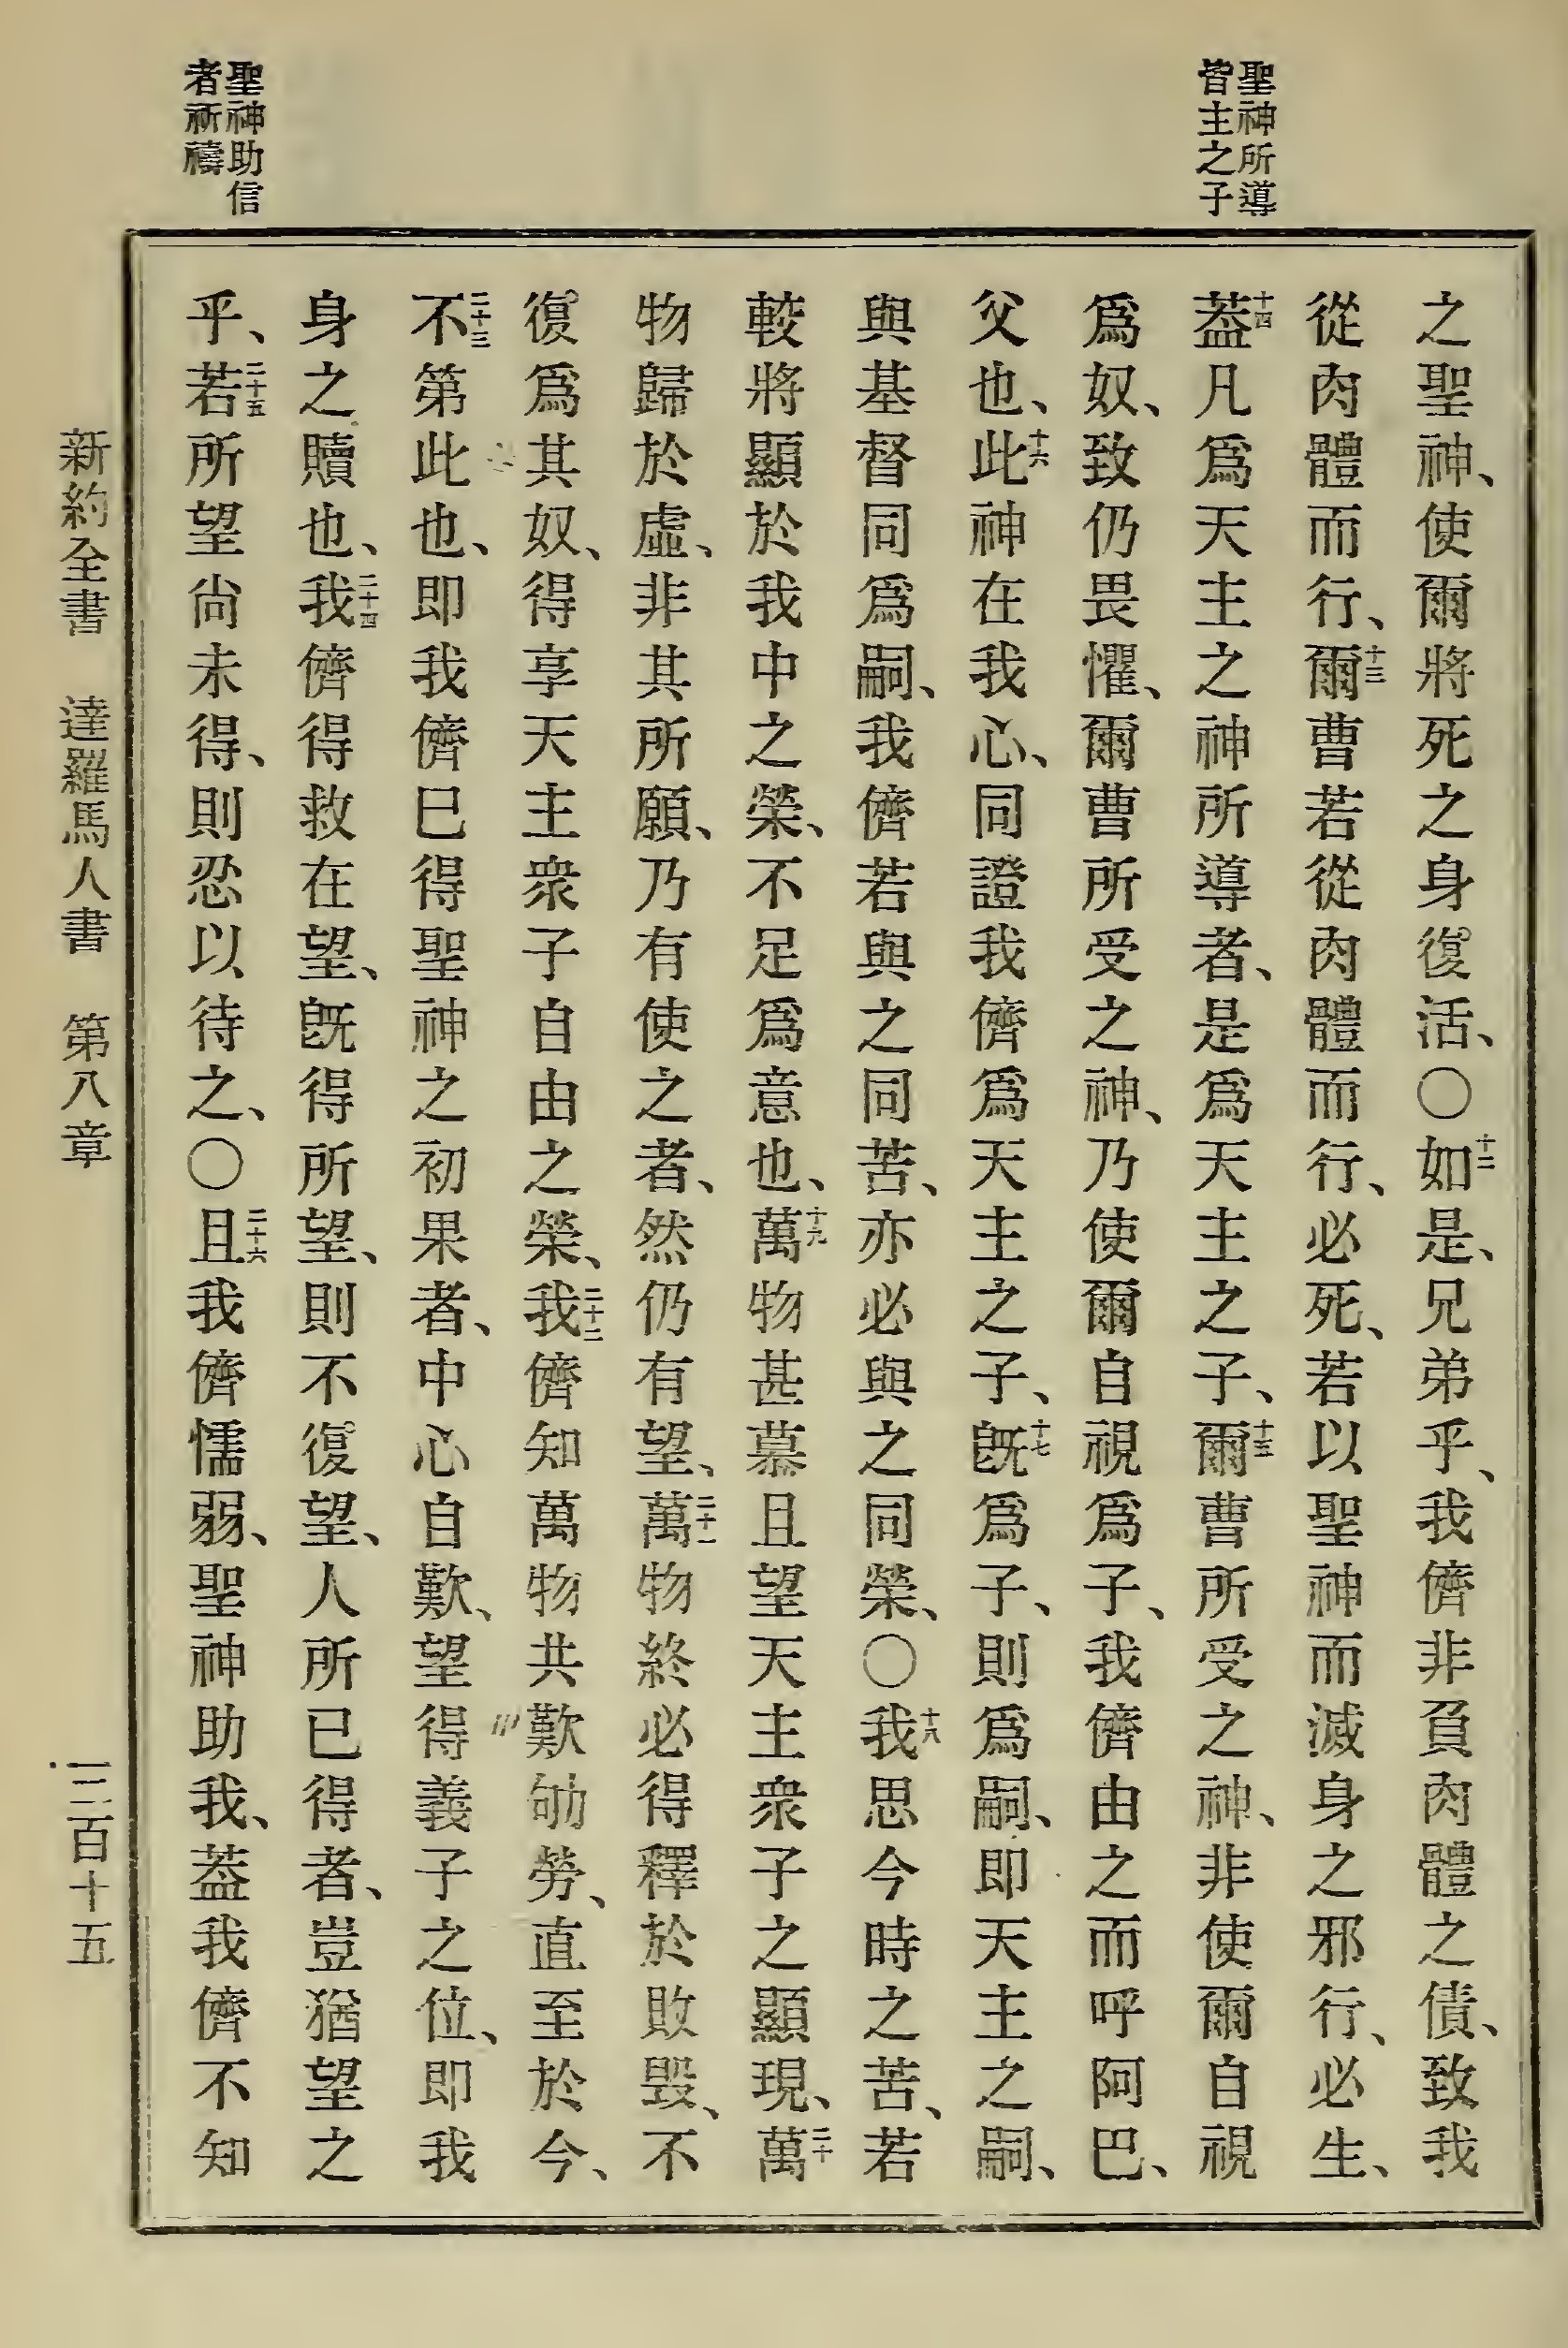 聖神所導
皆主之子
聖神助信
者祈禱
之聖神、使爾將死之身復活、○十二如是、兄弟乎、我儕非負肉體之債、致我
從肉體而行、十三爾曹若從肉體而行、必死、若以聖神而滅身之邪行、必生、
十四蓋凡爲天主之神所導者、是爲天主之子、十五爾曹所受之神、非使爾自視
爲奴、致仍畏懼、爾曹所受之神、乃使爾自視爲子、我儕由之而呼阿巴、
父也、十六此神在我心、同證我儕爲天主之子、十七旣爲子、則爲嗣、卽天主之嗣、
與基督同爲嗣、我儕若與之同苦、亦必與之同榮、○十八我思今時之苦、若
較將顯於我中之榮、不足爲意也、十九萬物甚慕且望天主衆子之顯現、二十萬
物歸於虛、非其所願、乃有使之者、然仍有望、二十一萬物終必得釋於敗毀、不
復爲其奴、得享天主衆子自由之榮、二十二我儕知萬物共歎劬勞、直至於今、
二十三不第此也、卽我儕已得聖神之初果者、中心自歎、望得義子之位、卽我
身之贖也、二十四我儕得救在望、旣得所望、則不復望、人所已得者、豈猶望之
乎、二十五若所望尙未得、則忍以待之、○二十六且我儕懦弱、聖神助我、蓋我儕不知
新約全書 達羅馬人書 第八章 三百十五